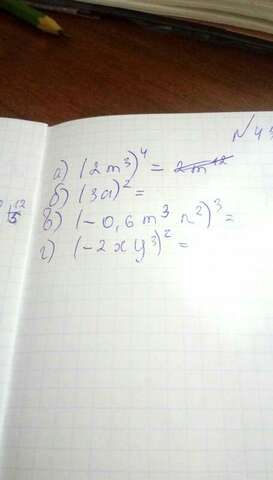 № 43
а) (2m³)⁴ = 2m¹²
б) (3a)² =
в) (-0,6 m³ n²)³ =
г) (-2xy³)² =